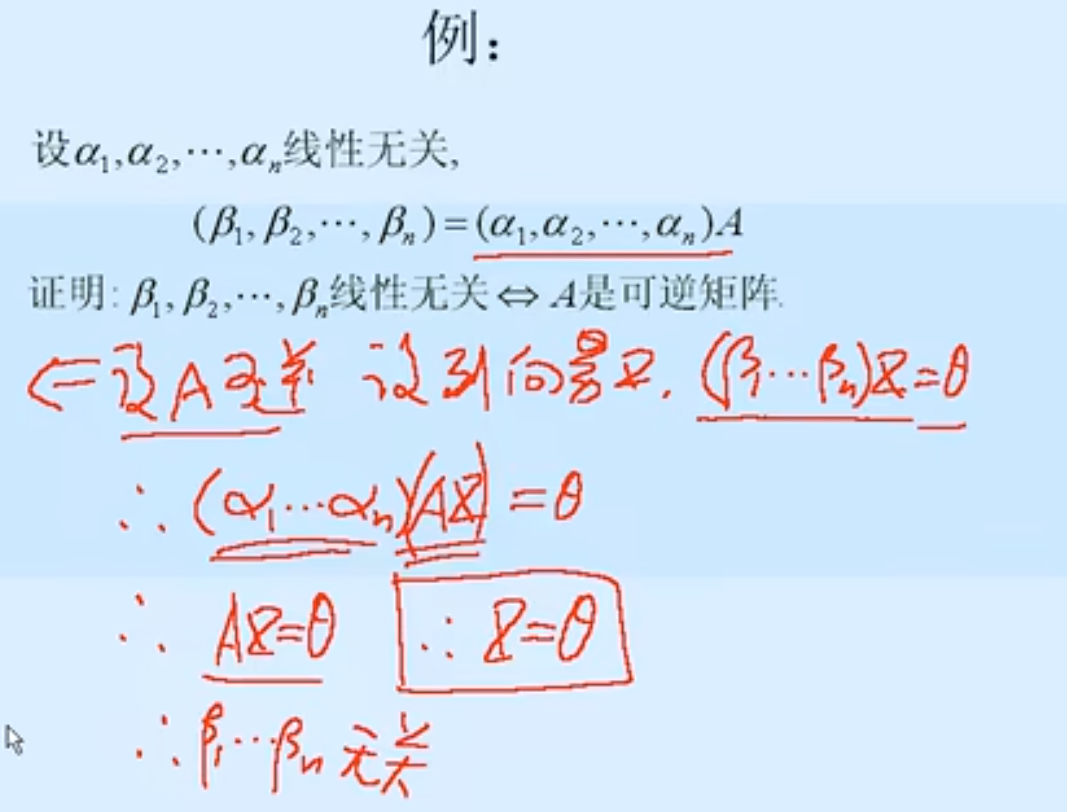 例：
设α₁,α₂,⋯,αₙ线性无关,
(β₁, β₂,⋯, βₙ)=(α₁,α₂,⋯,αₙ)A
证明: β₁, β₂,⋯, βₙ线性无关⇔ A是可逆矩阵.
⇐设A可逆 设列向量X. (β₁⋯βₙ)X=θ
∴ (α₁⋯αₙ)(AX)=θ
∴ AX=θ ∴ X=θ
∴ β₁⋯βₙ无关